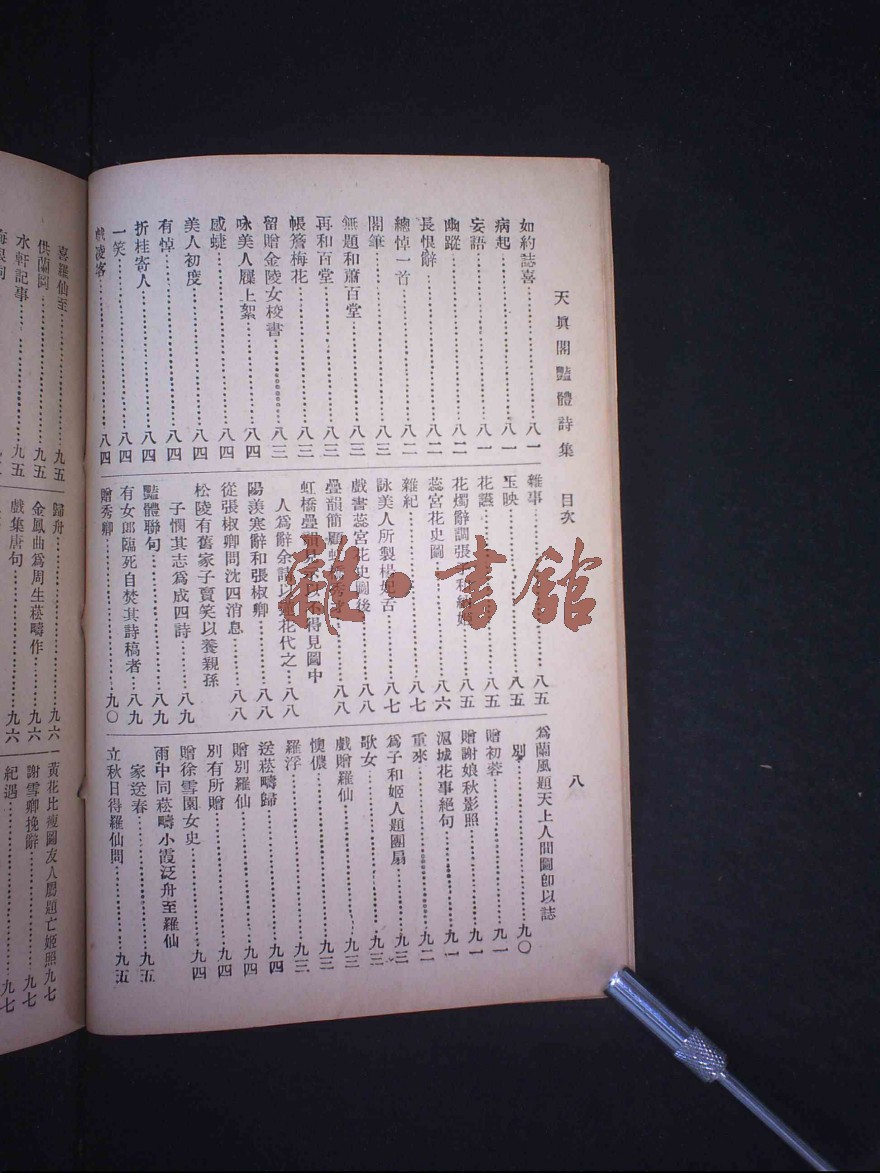 天眞閣豔體詩集　目次　八
如約誌喜…八一
病起…八一
妄語…八一
幽蹤…八二
長恨辭…八二
總悼一首…八二
閣筆…八三
無題和蕭百堂…八三
再和百堂…八三
帳簷梅花…八三
留贈金陵女校書…八三
咏美人屧上絮…八四
感婕…八四
美人初度…八四
有悼…八四
折桂寄人…八四
一笑…八四
戲凌客…八四
雜事…八五
玉映…八五
花讌…八五
花燭辭調張…八五
蕊宮花史圖…八六
雜紀…八七
詠美人所製楊妃舌…八七
戲書蕊宮花史圖後…八八
疊韻簡顧…八八
虹橋疊…以不得見圖中
人爲辭余請以蓮花代之…八八
陽羨寒辭和張椒卿…八八
從張椒卿問沈四消息…八八
松陵有舊家子賣笑以養親孫
子憫其志爲成四詩…八九
豔體聯句…八九
有女郎臨死自焚其詩稿者…八九
贈秀卿…九〇
爲蘭風題天上人間圖卽以誌
別…九〇
贈初蓉…九一
贈謝娘秋影照…九一
滬城花事絕句…九一
重來…九二
爲子和姬人題團扇…九三
歌女…九三
戲贈羅仙…九三
懊儂…九三
羅浮…九三
送菘疇歸…九四
贈別羅仙…九四
別有所贈…九四
贈徐雪園女史…九四
雨中同菘疇小霞泛舟至羅仙
家送春…九五
立秋日得羅仙問…九五
喜羅仙至…九五
供蘭圖…九五
水軒記事…九五
歸舟…九六
金鳳曲爲周生菘疇作…九六
戲集唐句…九六
黃花比瘦圖友人屬題亡姬照九七
謝雪卿挽辭…九七
紀遇…九七
雜·書館